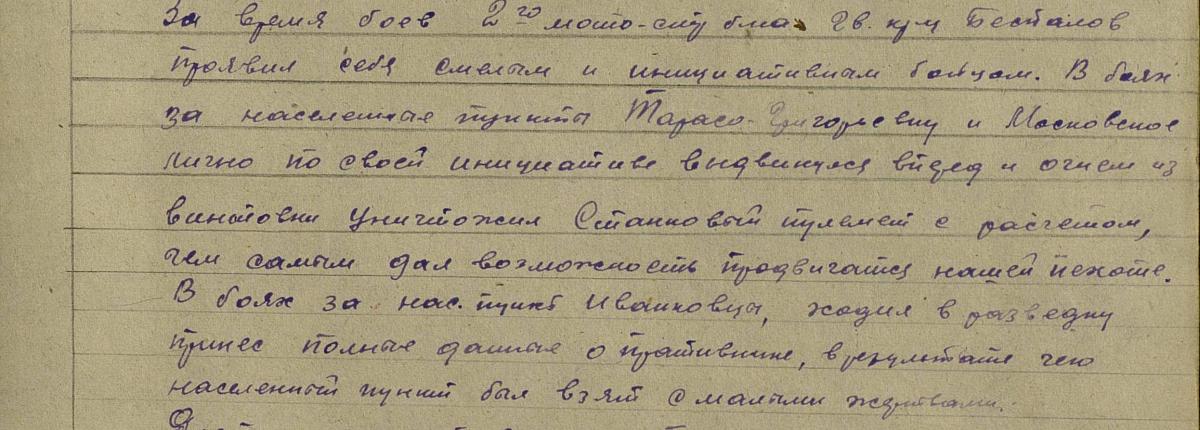 За время боев 2го мото-стр б-на гв. кр-ц Беспалов
проявил себя смелым и инициативным бойцом. В боях
за населенные пункты Тарасо-Григорьевку и Московское
лично по своей инициативе выдвинулся вперед и огнем из
винтовки уничтожил Станковый пулемет с расчетом,
чем самым дал возможность продвигатся нашей пехоте.
В боях за нас. пункт Иванковцы, ходил в разведку
принес полные данные о противнике, в результате чего
населенный пункт был взят с малыми жертвами.